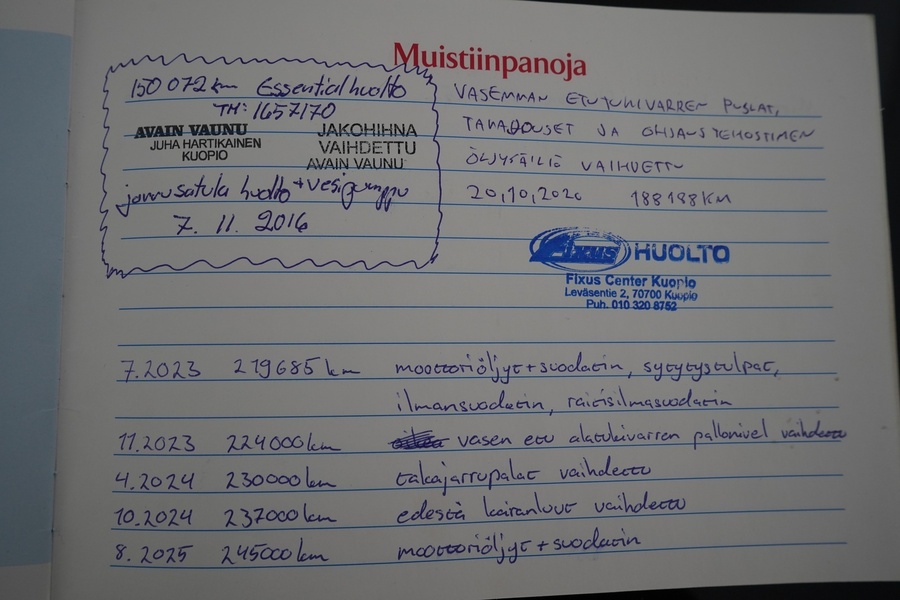 Muistiinpanoja
150 072 km Essential huolto
TH: 1657170
AVAIN VAUNU
JUHA HARTIKAINEN
KUOPIO
JAKOHIHNA
VAIHDETTU
AVAIN VAUNU
jarrusatula huolto + vesipumppu
7. 11. 2016
VASEMMAN ETUTUKIVARREN PUSLAT,
TAKAJOUSET JA OHJAUSTEHOSTIMEN
ÖLJYSÄILIÖ VAIHDETTU
20,10,2020 188188KM
Fixus HUOLTO
Fixus Center Kuopio
Leväsentie 2, 70700 Kuopio
Puh. 010 320 8752
7.2023 219685 km moottoriöljyt + suodatin, sytytystulpat,
ilmansuodatin, raitisilmasuodatin
11.2023 224000km vasen etu alatukivarren pallonivel vaihdettu
4.2024 230000km takajarrupalat vaihdettu
10.2024 237000km edestä koiranluut vaihdettu
8.2025 245000km moottoriöljyt + suodatin